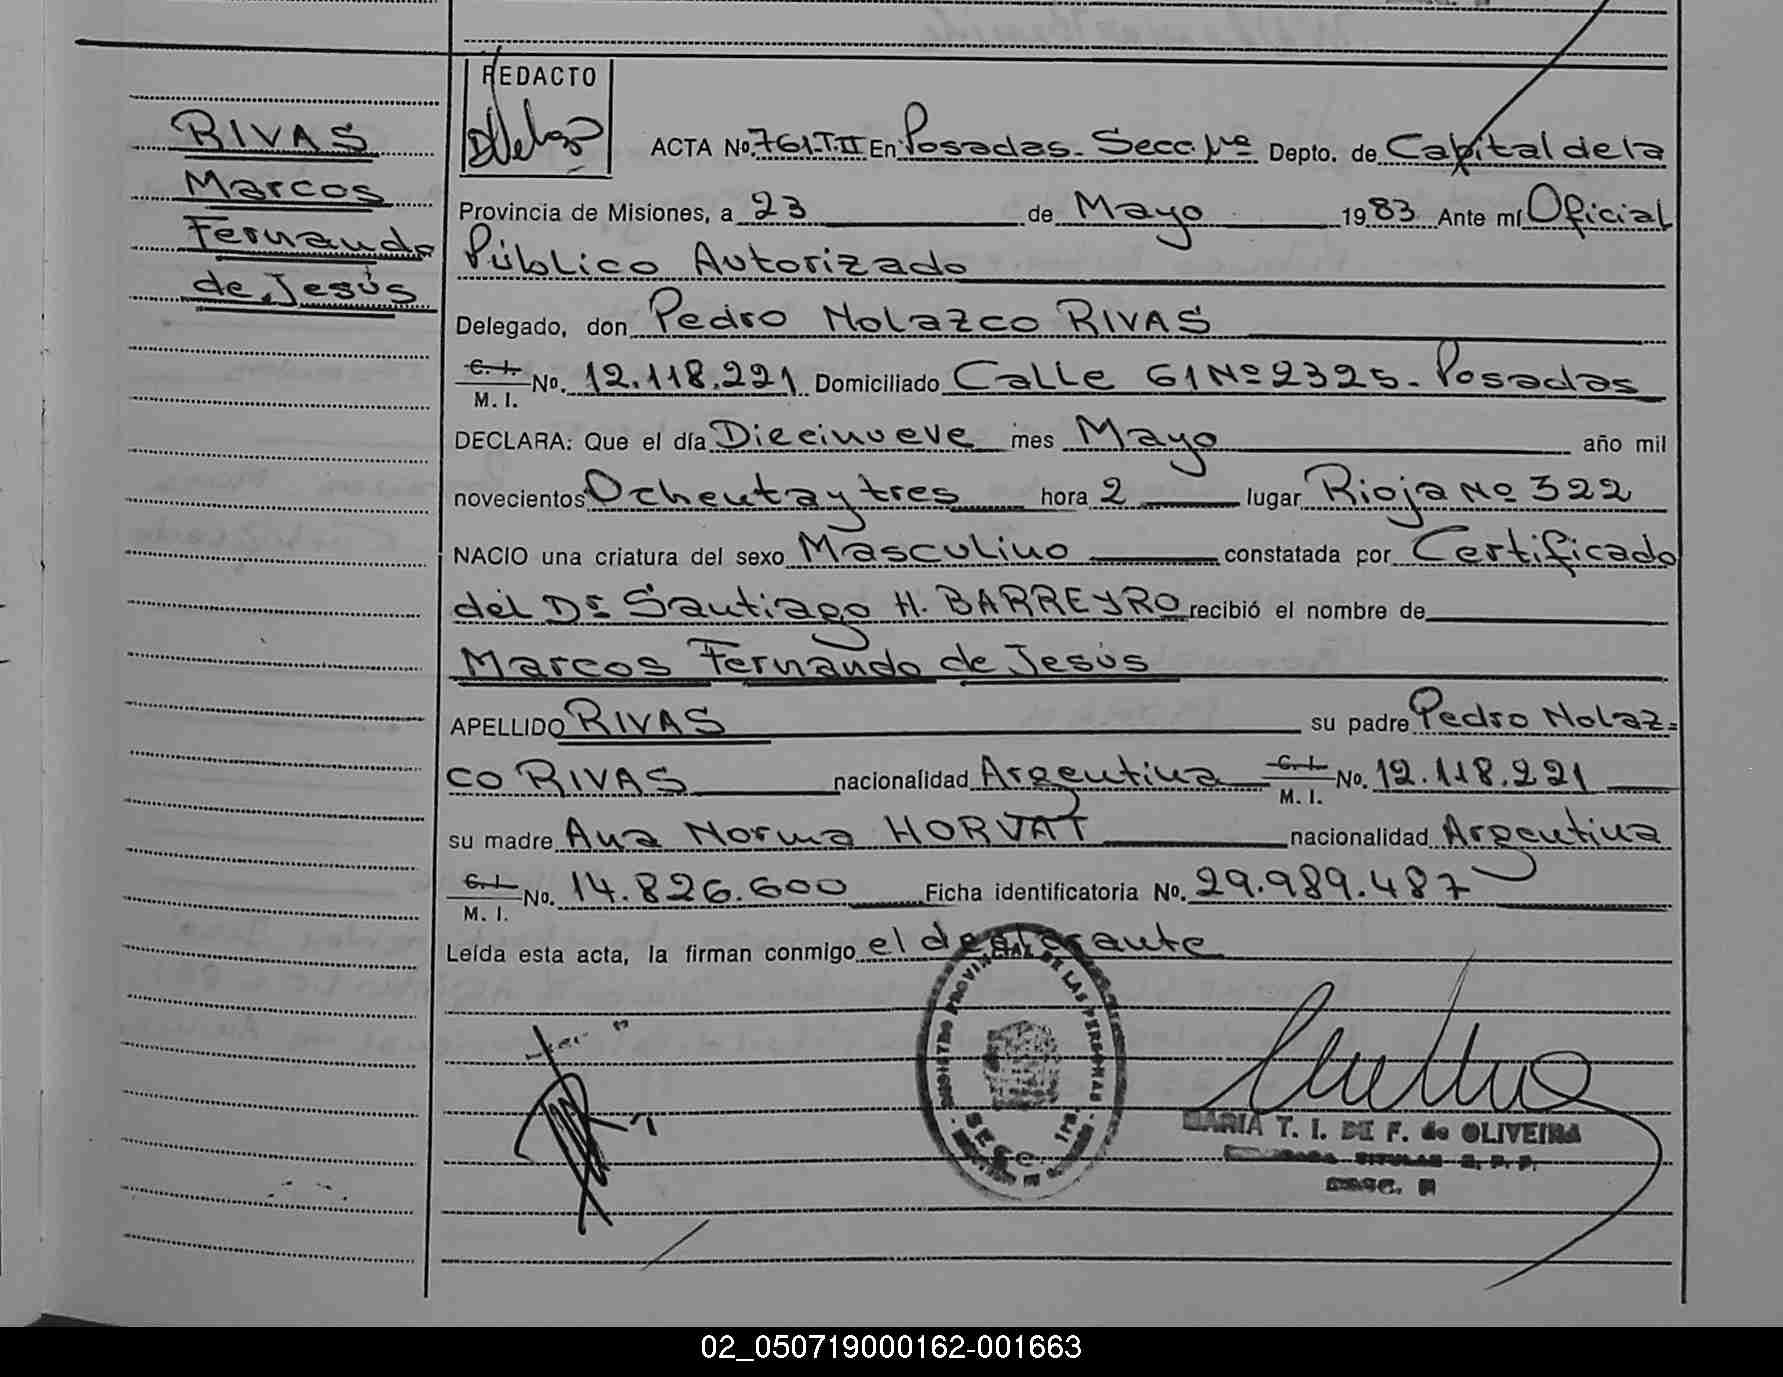 REDACTO
RIVAS
Marcos
Fernando
de Jesús
ACTA No. 761 T II En Posadas. Secc. 1ra Depto. de Capital de la
Provincia de Misiones, a 23 de Mayo 1983 Ante mí Oficial
Público Autorizado
Delegado, don Pedro Nolazco RIVAS
C. I. M. I. No. 12.118.221 Domiciliado Calle 61 Nº 2325. Posadas
DECLARA: Que el día Diecinueve mes Mayo año mil
novecientos Ochenta y tres hora 2 lugar Rioja Nº 322
NACIO una criatura del sexo Masculino constatada por Certificado
del Dr Santiago H. BARREYRO recibió el nombre de
Marcos Fernando de Jesús
APELLIDO RIVAS su padre Pedro Nolaz=
co RIVAS nacionalidad Argentina C. I. M. I. No. 12.118.221
su madre Ana Norma HORVAT nacionalidad Argentina
C. I. M. I. No. 14.826.600 Ficha identificatoria No. 29.989.487
Leída esta acta, la firman conmigo el declarante
REGISTRO PROVINCIAL DE LAS PERSONAS
SECC. 1ra.
MARIA T. I. DE F. de OLIVEIRA
TITULAR R. P. P.
02_050719000162-001663